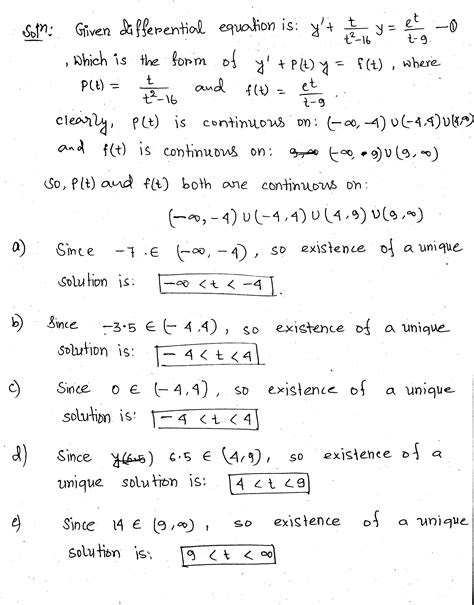 Soln: Given differential equation is: y' + t/(t²-16) y = e^t/(t-9) —①
, which is the form of y' + P(t) y = f(t), where
P(t) = t/(t²-16) and f(t) = e^t/(t-9).
clearly, P(t) is continuous on: (-∞, -4) ∪ (-4, 4) ∪ (4, 9)
and f(t) is continuous on: (-∞, 9) ∪ (9, ∞)
so, P(t) and f(t) both are continuous on:
(-∞, -4) ∪ (-4, 4) ∪ (4, 9) ∪ (9, ∞)
a) Since -7 ∈ (-∞, -4), so existence of a unique
solution is: -∞ < t < -4.
b) Since -3.5 ∈ (-4, 4), so existence of a unique
solution is: -4 < t < 4
c) Since 0 ∈ (-4, 4), so existence of a unique
solution is: -4 < t < 4
d) Since y(6.5) 6.5 ∈ (4, 9), so existence of a
unique solution is: 4 < t < 9
e) Since 14 ∈ (9, ∞), so existence of a unique
solution is: 9 < t < ∞